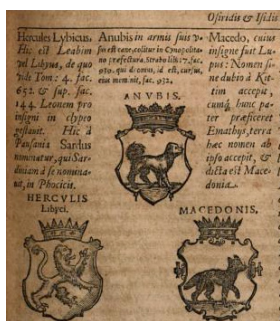 Osiridis & Isidis
Hercules Lybicus.
Hic est Leabim
vel Libyus, de quo
vide Tom: 4. fac.
652. & sup. fac.
144. Leonem pro
insigni in clypeo
gestant. Hic à
Pausania Sardus
nominatur, qui Sar-
diniam à se nomina-
vit, in Phocicis.
HERCVLIS
Libyci.
Anubis in armis suis
fert canem, colitur in Cynopolita-
no præfectura. Strabo lib: 17. fac.
eius meminit, fac. 932.
ANVBIS.
Macedo, cuius
insigne fuit Lu-
pus: Nomen si-
ne dubio à Kit-
tim accepit,
cumq́; hunc pa-
ter præficeret
Emathiæ, terra
hæc nomen ab
ipso accepit, &
dicta est Mace-
donia.
MACEDONIS.